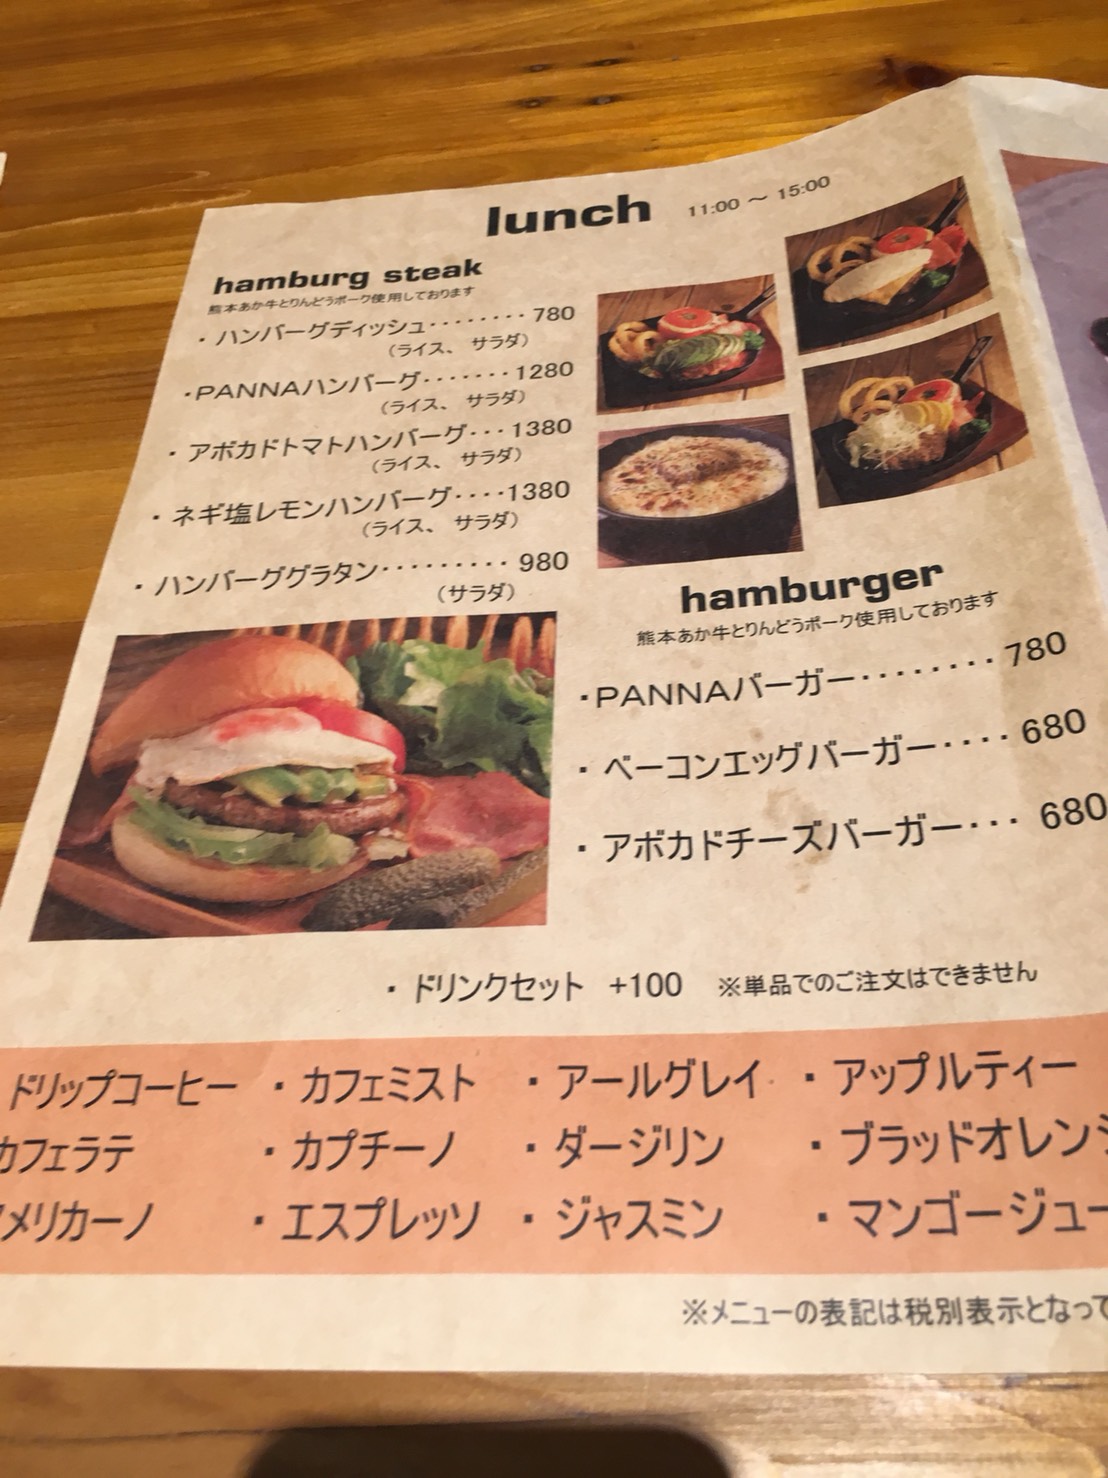 lunch 11:00 ～ 15:00
hamburg steak
熊本あか牛とりんどうポーク使用しております
・ハンバーグディッシュ········780
（ライス、 サラダ）
・PANNAハンバーグ·······1280
（ライス、 サラダ）
・アボカドトマトハンバーグ···1380
（ライス、 サラダ）
・ネギ塩レモンハンバーグ····1380
（ライス、 サラダ）
・ハンバーググラタン·········980
（サラダ）
hamburger
熊本あか牛とりんどうポーク使用しております
・PANNAバーガー········780
・ベーコンエッグバーガー····680
・アボカドチーズバーガー···680
・ドリンクセット +100 ※単品でのご注文はできません
ドリップコーヒー ・カフェミスト ・アールグレイ ・アップルティー
カフェラテ ・カプチーノ ・ダージリン ・ブラッドオレン
メリカーノ ・エスプレッソ ・ジャスミン ・マンゴージュー
※メニューの表記は税別表示となって